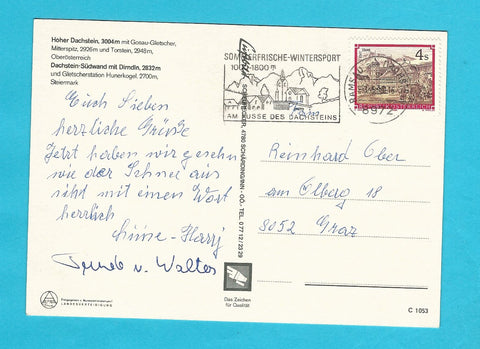 Hoher Dachstein, 3004m mit Gosau-Gletscher,
Mitterspitz, 2926m und Torstein, 2948m,
Oberösterreich
Dachstein-Südwand mit Dirndln, 2832m
und Gletscherstation Hunerkogel, 2700m,
Steiermark
Euch Lieben
herzliche Grüße
Jetzt haben wir gesehn
wie der Schnee aus
sieht mit einem Wort
herrlich
v. Walter
LANDESVERTEIDIGUNG
SCHÄRDING/INN - OÖ. - TEL. 077 12/23 29
Das Zeichen
für Qualität
SOMMERFRISCHE-WINTERSPORT
AM FUSSE DES DACHSTEINS
RAMSAU
8972
4s
REPUBLIK ÖSTERREICH
Reinhard Ober
am Ölberg 18
8052 Graz
C 1053